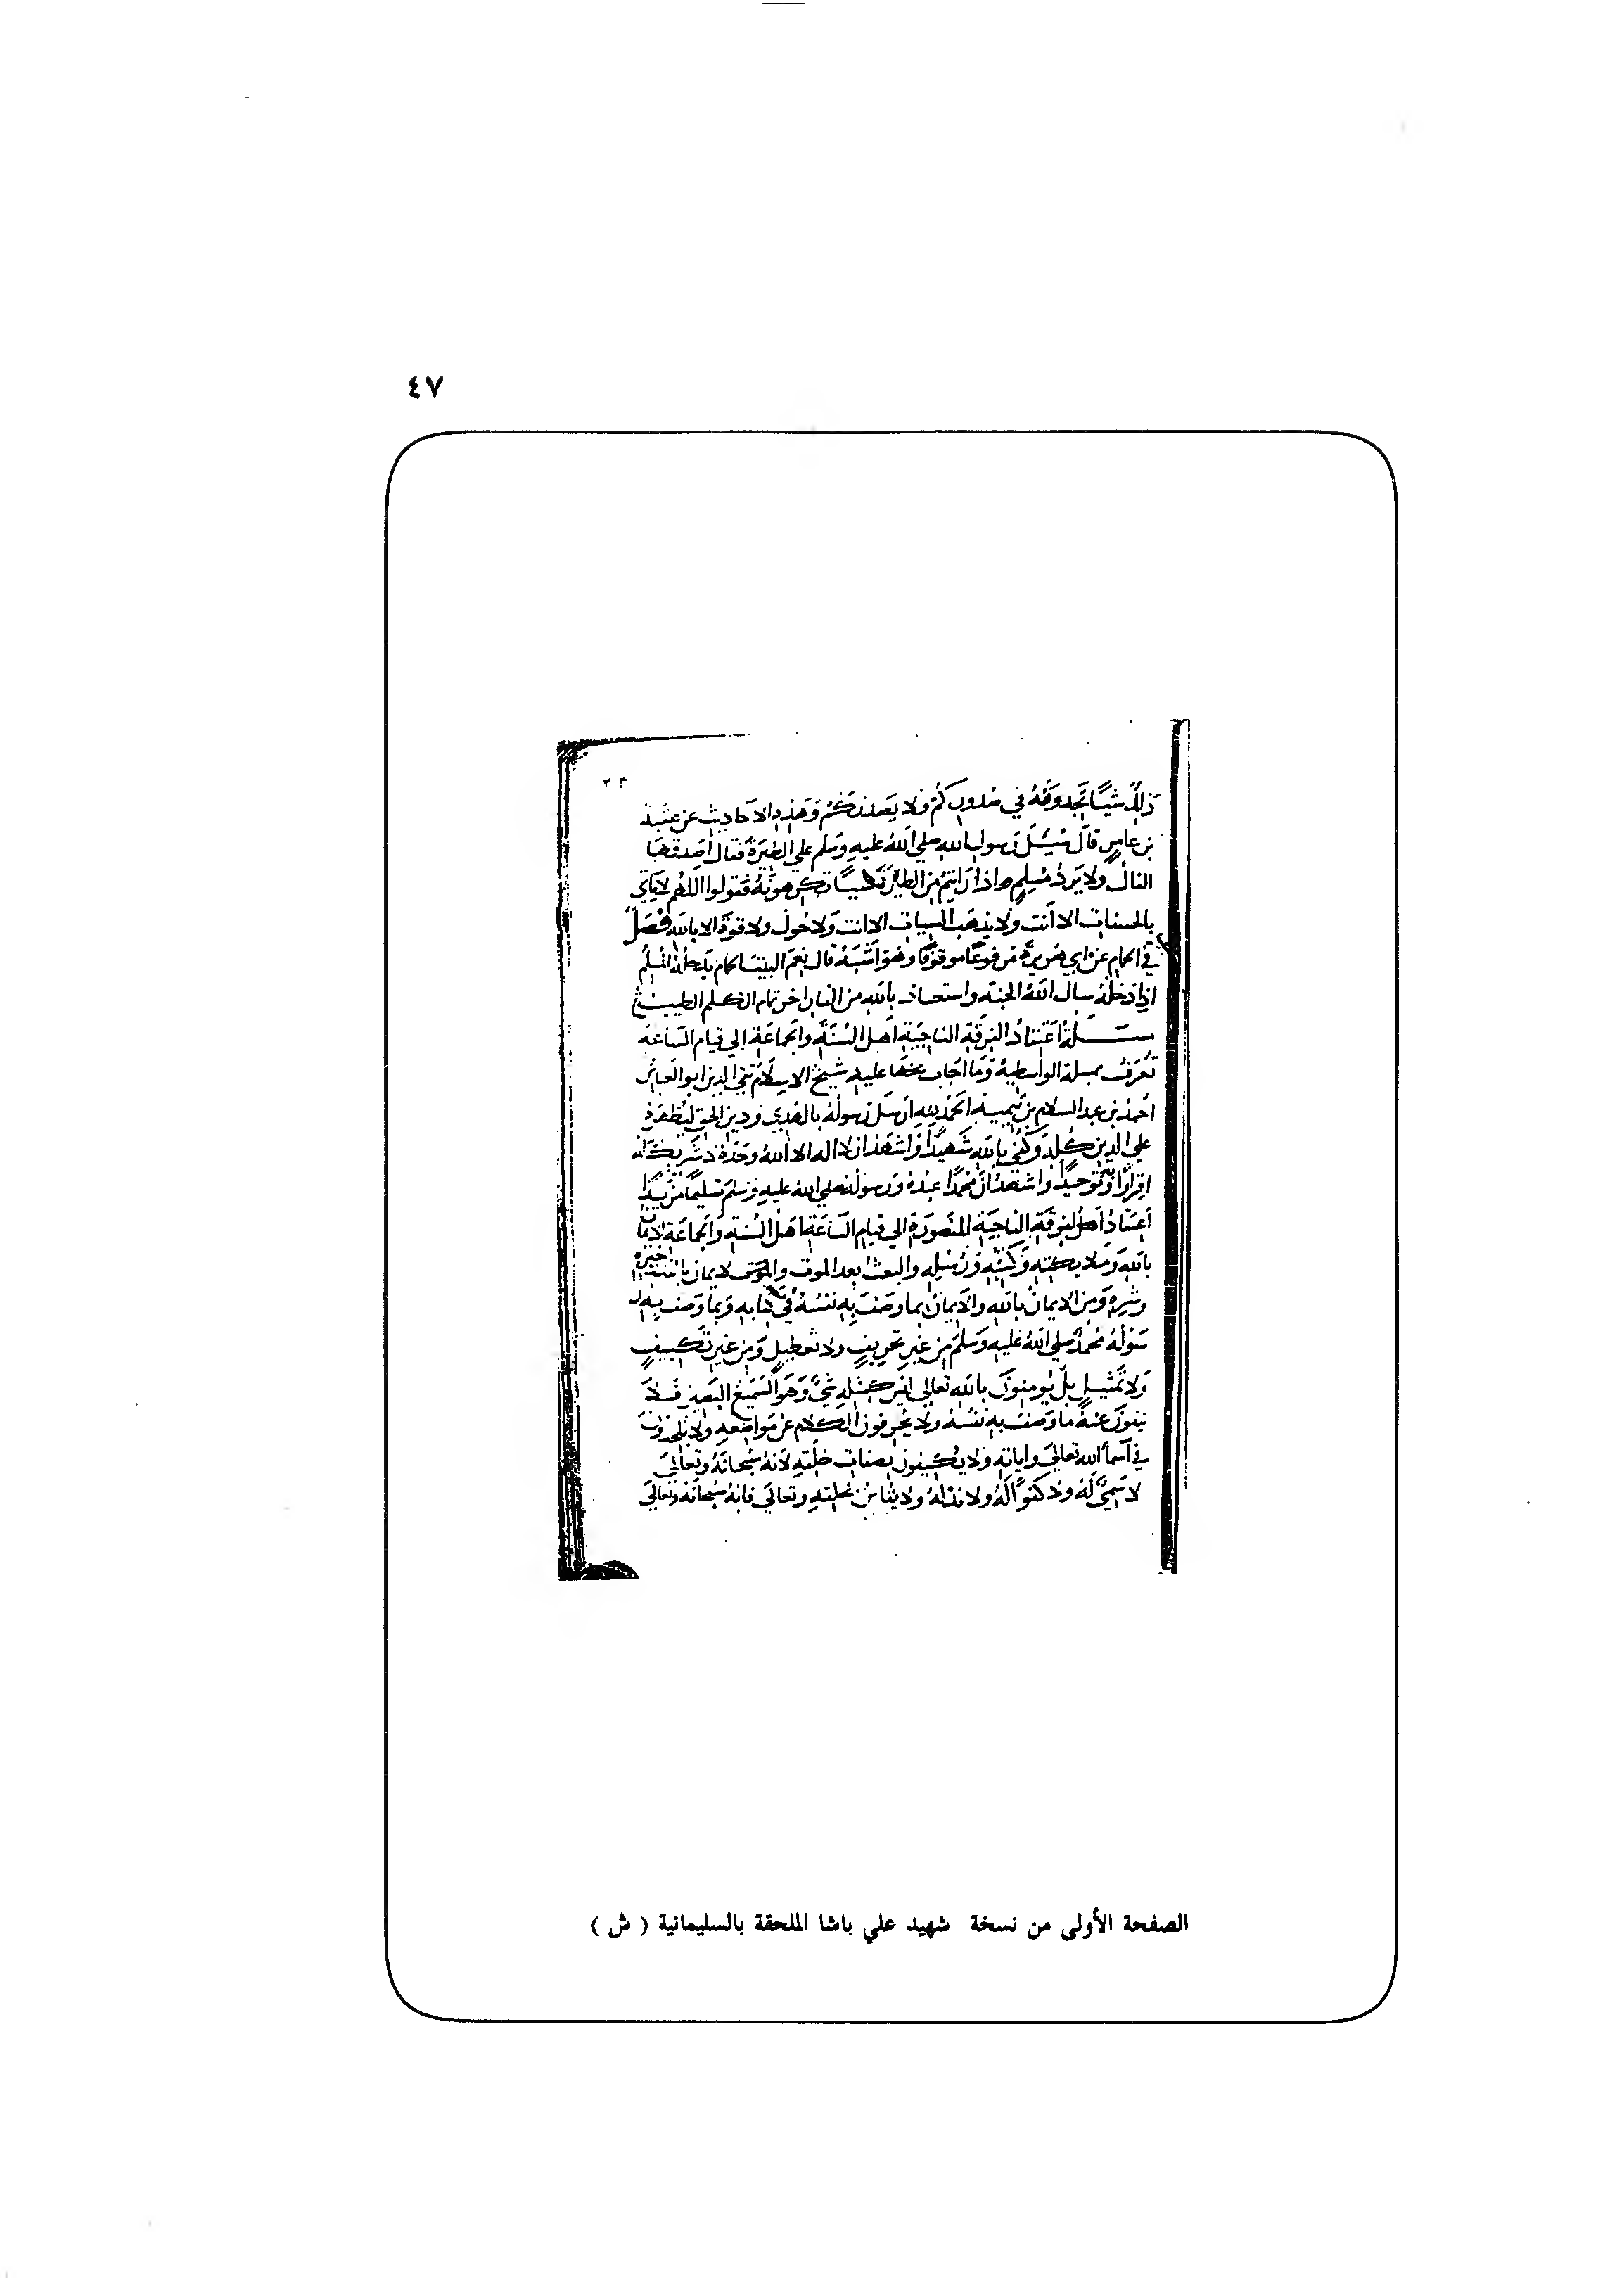 ٤٧
ذلك شيا تجدونه في صدوركم ولا يصدنكم وهذه الاحاديث عن عقبة
بن عامر قال سئل رسول الله صلي الله عليه وسلم علي الطيرة فقال اصدقها
الفال ولا يرد مسلم واذا رايتم من الطير شيا تكرهونه فقولوا اللهم لا ياتي
بالحسنات الا انت ولا يذهب السيات الا انت ولا حول ولا قوة الا بالله فصل
في الحمام عن ابي هريرة مرفوعا موقوفا وهو اشبه قال نعم البيت الحمام يدخله المسلم
اذا دخله سال الله الجنة واستعاذ بالله من النار اخر تمام الكلم الطيب
مسلة اعتقاد الفرقة الناجية اهل السنة والجماعة الي قيام الساعة
تعرف بمسلة الواسطية وما اجاب عنها عليه شيخ الاسلام تقي الدين ابو العباس
احمد بن عبد السلام بن تيمية الحمد لله ارسل رسوله بالهدي ودين الحق ليظهره
علي الدين كله وكفي بالله شهيدا واشهد ان لا اله الا الله وحده لا شريك له
اقرارا وتوحيدا واشهد ان محمدا عبده ورسوله صلي الله عليه وسلم تسليما مزيدا
اعتقاد اهل الفرقة الناجية المنصورة الي قيام الساعة اهل السنة والجماعة الايمان
بالله وملايكته وكتبه ورسله والبعث بعد الموت والايمان بالقدر خيره
وشره ومن الايمان بالله والايمان بما وصف به نفسه في كتابه وبما وصف به ر
سوله محمد صلي الله عليه وسلم من غير تحريف ولا تعطيل ومن غير تكييف
ولا تمثيل بل يومنون بالله تعالي ليس كمثله شي وهو السميع البصير فلا
ينفون عنه ما وصف به نفسه ولا يحرفون الكلام عن مواضعه ولا يلحدون
في اسما الله تعالي واياته ولا يكيفون بصفات خلقه لانه سبحانه وتعالي
لا سمي له ولا كفوا له ولا ند له ولا يقاس بخلقه وتعالي فانه سبحانه وتعالي
الصفحة الأولى من نسخة شهيد علي باشا الملحقة بالسليمانية ( ش )